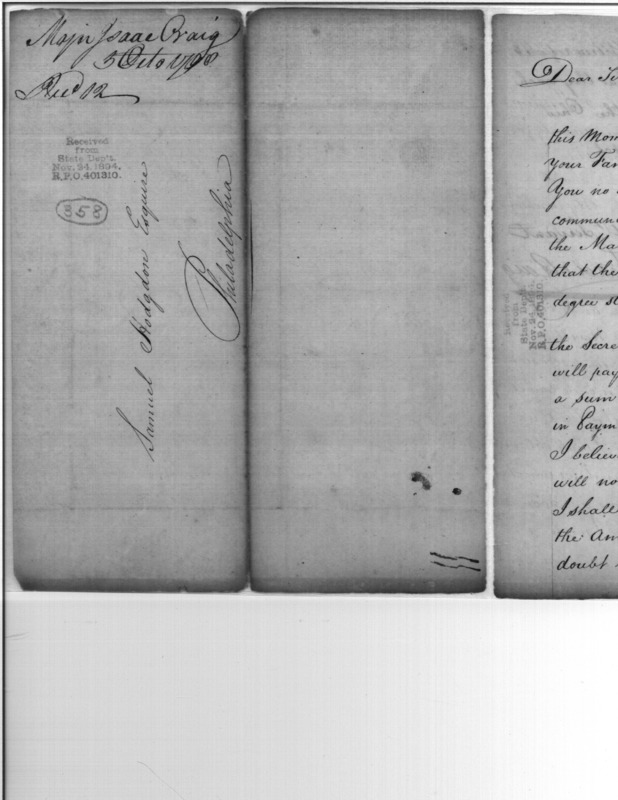 Majr Isaac Craig
3 Octo 1798
Recd 12
Received
from
State Dep't.
Nov. 24. 1894.
R.P.O. 401310.
358
Samuel Hodgdon Esquire
Philadelphia
Dear
this
your
You no
the
that the
degree
the
will pay
a sum
in
I
will
I shall
the
doubt
Received
from
State Dep't.
Nov. 24. 1894.
R.P.O. 401310.